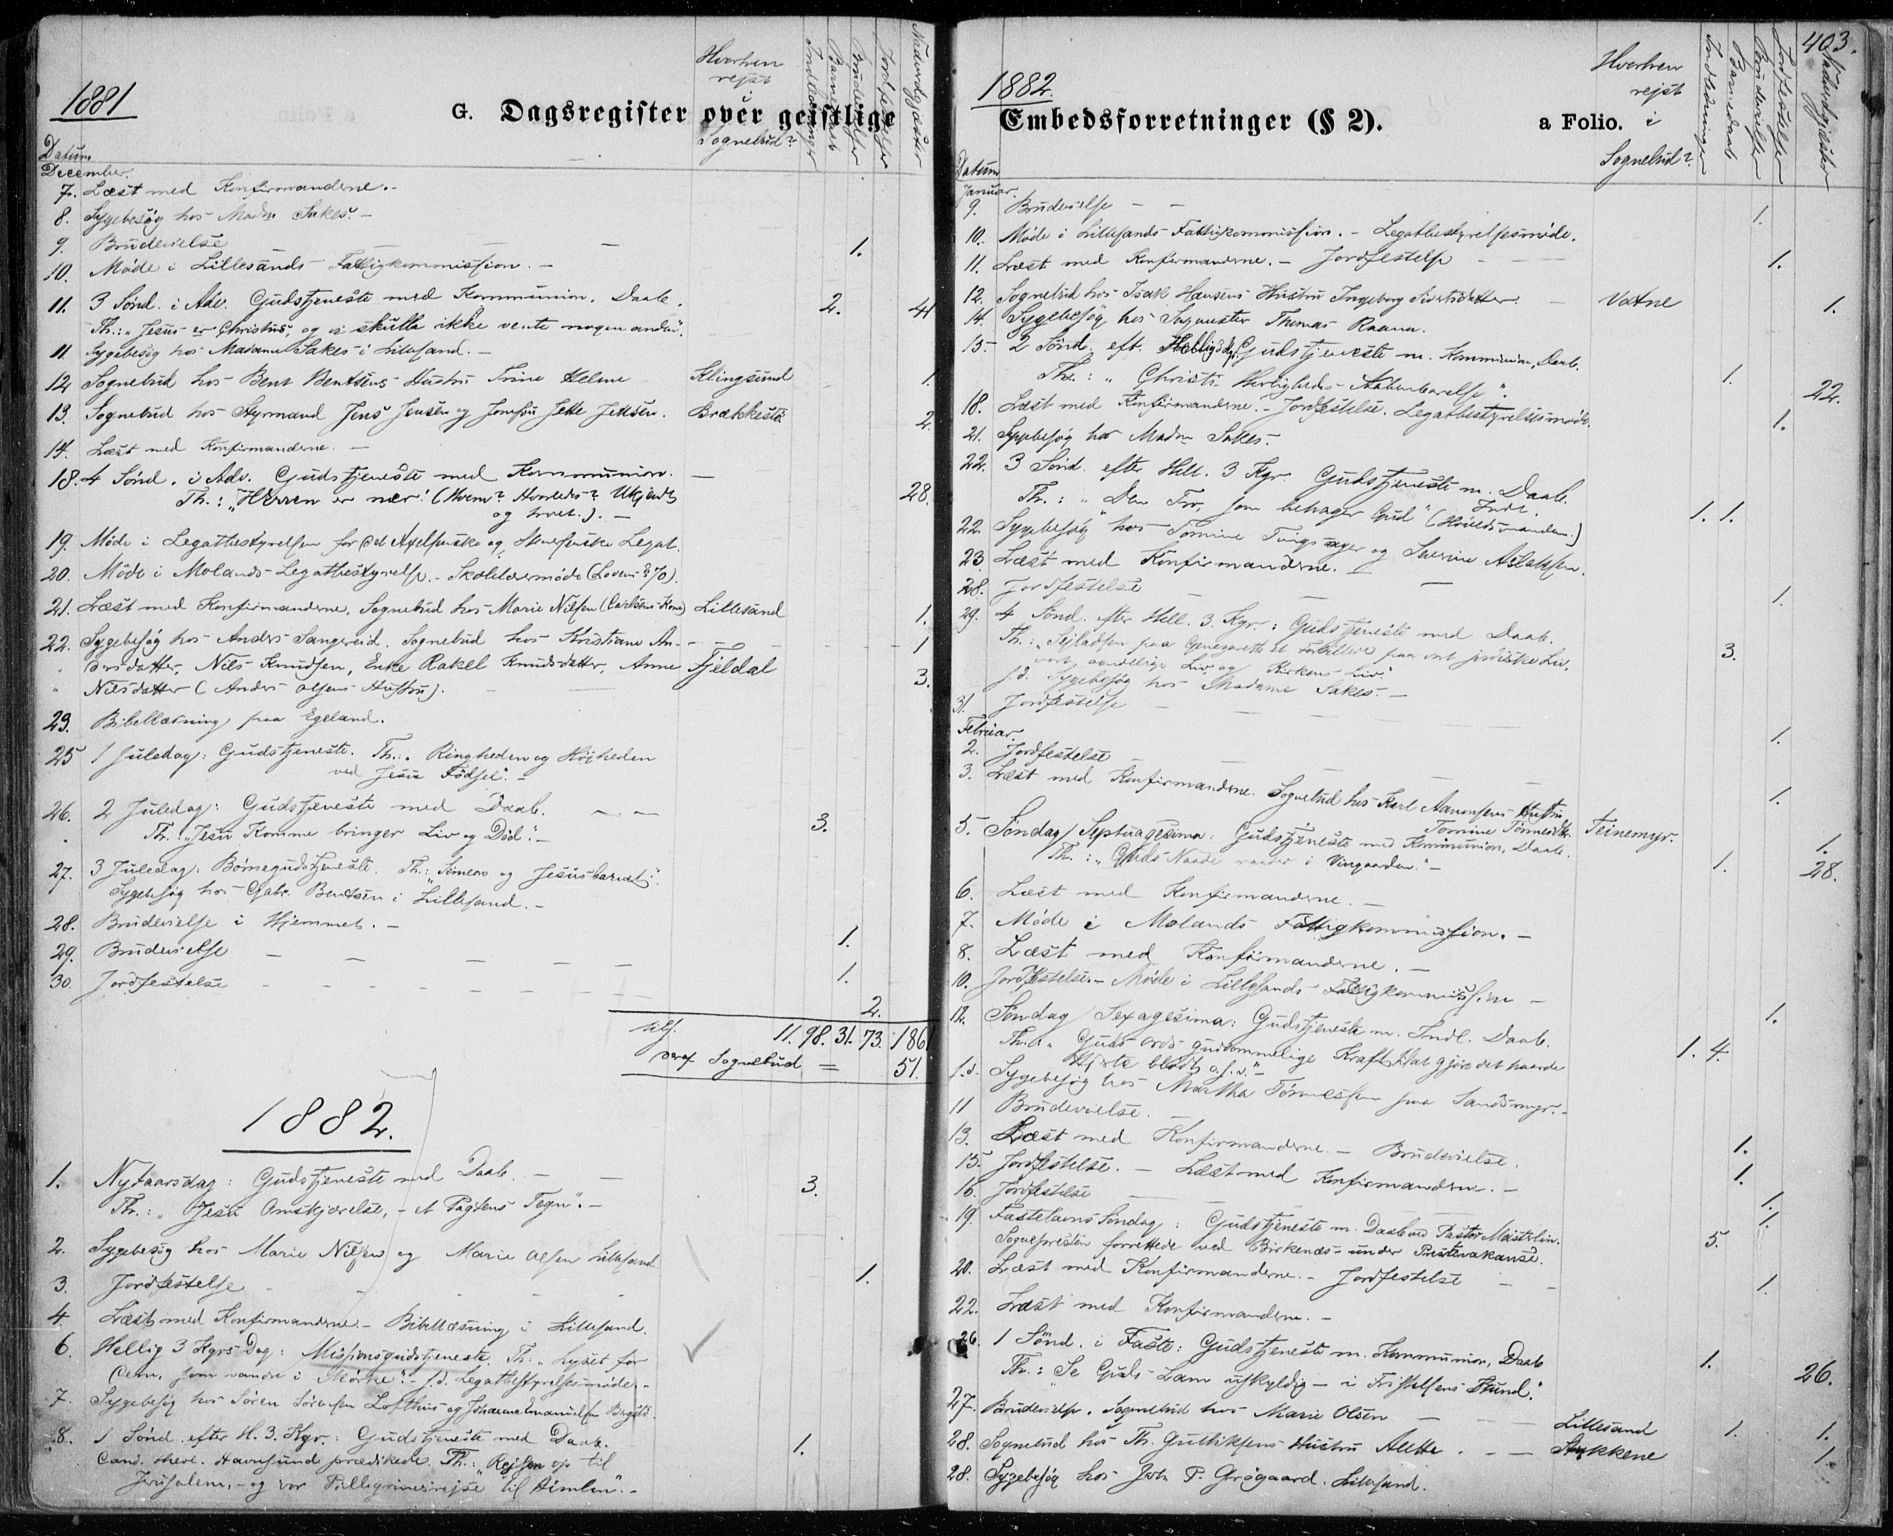 1881
G. Dagsregister over geistlige
Hvorhen rejst i Sognebud?
Indledninger
Barnedaab
Brudevielser
Jordfæstelser
Nadverdgjæster
Datum
December.
7. Læst med Konfirmanderne. -
8. Sygebesøg hos Madm Sakes. -
9. Brudevielse - - 1.
10. Møde i Lillesands Fattigkommission. -
11. 3 Sønd. i Adv. Gudstjeneste med Kommunion. Daab. 2. 41
Th.: "Jesus er Christus, og vi skulle ikke vente nogen anden".
11. Sygebesøg hos Madame Sakes i Lillesand. -
12 Sognebud hos Bent Bentsens Hustru Trine Helene Klingsund 1.
13. Sognebud hos Styrmand Jens Jensen og Jomfru Jette Jensen. Brækkestø 2.
14. Læst med Konfirmanderne. -
18. 4 Sønd. i Adv. Gudstjeneste med Kommunion. - 28.
Th.: "Herren er nær! (Hvem? Hvorledes? Ukjendt
og hvort.). -
19. Møde i Legatbestyrelsen for det Axelsenske og Legat.
20. Møde i Molands Legatbestyrelse. - Skolelærermøde (Lovens § 70).
21. Læst med Konfirmanderne. Sognebud hos Marie Nilsen (Carlsens Kone) Lillesand 1.
22. Sygebesøg hos Anders Sangereid. Sognebud hos Kristiane An- - 1
" dersdatter, Nils Knudsen, Enke Rakel Knudsdatter, Anne Fjeldal
" Nilsdatter (Anders Olsens Hustru). 3.
23. Bibellæsning paa Egeland.
25 1 Juledag: Gudstjeneste. Th.: "Ringheden og Højheden
ved Jesu Fødsel". -
26. 2 Juledag: Gudstjeneste med Daab. 3.
Th. "Jesu Komme bringer Liv og Død". -
27. 3 Juledag: Børnegudstjeneste. Th.: "Simeon og Jesusbarnet".
Sygebesøg hos Gabr. Bentsen i Lillesand. -
28. Brudevielse i Hjemmet. - 1.
29. Brudevielse - - - - 1.
30. Jordfestelse - - - - 2.
tils. 11. 98. 31. 73. 186
deraf Sognebud = 51.
1882.
1. Nytaarsdag: Gudstjeneste med Daab. - 3.
Th.: "Jesu Omskjærelse, - et Pagtens Tegn". -
2. Sygebesøg hos Marie Nilsen og Marie Olsen Lillesand.
3. Jordfestelse - 1.
4. Læst med Konfirmanderne - Bibellæsning i Lillesand.
6. Hellig 3 Kgrs Dag: Missionsgudstjeneste. Th.: "Lyset for
Dem, som vandre i Mørke". - s.d. Legatbestyrelsesmøde. -
7. Sygebesøg hos Søren Sørensen Lofthus og Johanne Emanuelsen
8. 1 Sønd. efter H. 3. Kgr.: Gudstjeneste med Daab. 1.
Cand. theol. Havnsund prædikede. Th.: "Rejsen op til
Jerusalem, - og vor Pillegrimsrejse til Himlen". -
1882.
403.
Embedsforretninger (§ 2).
a Folio.
Hvorhen rejst i Sognebud?
Indledninger
Barnedaab
Brudevielser
Jordfæstelser
Nadverdgjæster
Datum
Januar.
9. Brudevielse - - 1.
10. Møde i Lillesands Fattigkommission. - Legatbestyrelsesmøde.
11. Læst med Konfirmanderne. - Jordfestelse - 1.
12. Sognebud hos Isak Hansens Hustru Ingeborg Sivertsdatter. - Vatne 1.
14. Sygebesøg hos Thomas Raana.
15. 2 Sønd. eft. Gudstjeneste m. Kommunion, Daab.
Th.: "Christi Herligheds Aabenbarelse" 1. 22.
18. Læst med Konfirmanderne. - Jordfestelse. Legatbestyrelsesmøde. 1.
21. Sygebesøg hos Madm Sakes.
22. 3 Sønd. efter Hell. 3 Kgr. Gudstjeneste m. Daab. Indl.
Th.: "Den Tro, som behager Gud" (Høvedsmanden.) 1. 1.
22. Sygebesøg hos Tomine og Severine Aslaksen.
23. Læst med Konfirmanderne. -
28. Jordfestelse - - 1.
29. 4 Sønd. efter Hell. 3. Kgr.: Gudstjeneste med Daab.
Th.: "Sejladsen paa Genezareth et Forbillede paa vort jordiske Liv, 3.
vort aandelige Liv og Kirkens Liv."
s.d. Sygebesøg hos Madame Sakes. -
31. Jordfestelse - - - 1.
Februar.
2. Jordfestelse - - 1.
3. Læst med Konfirmanderne. Sognebud hos Karl Aanonsens Hustru
Tomine Tønnesdtr. Teinemyr. 1.
5. Søndag Septuagesima: Gudstjeneste med Kommunion, Daab.
Th.: "Guds Naade raader i Vingaarden." - 1. 28.
6. Læst med Konfirmanderne. -
7. Møde i Molands Fattigkommission. -
8. Læst med Konfirmanderne. -
10. Jordfestelse. - Møde i Lillesands Fattigkommission - 1.
12. Søndag Sexagesima: Gudstjeneste m. Indl. Daab.
Th.: "Guds Ords guddommelige Kraft til at gjøre det haarde 1. 4.
Hjerte blødt o.s.v." -
s.d. Sygebesøg hos Martha Tønnessen paa Sandsmyr. -
11 Brudevielse. 1.
13. Læst med Konfirmanderne. - Brudevielse. 1.
15. Jordfestelse. - Læst med Konfirmanderne. - 1.
16. Jordfestelse - 1.
19. Fastelavns Søndag: Gudstjeneste m. Daab ved Pastor
Sognepresten forrettede ved Birkenæs under Prestevakanse. 5.
20. Læst med Konfirmanderne. - Jordfestelse - 1.
22. Læst med Konfirmanderne. -
26. 1 Sønd. i Faste: Gudstjeneste m. Kommunion, Daab 1. 26.
Th.: "Se Guds Lam uskyldig - i Fristelsens Stund."
27. Brudevielse. Sognebud hos Marie Olsen - Lillesand 1. 1.
28. Sognebud hos Th. Gulliksens Hustru Alette. - - Stykkene 1.
28. Sygebesøg hos P. Grøgaard. Lillesand.